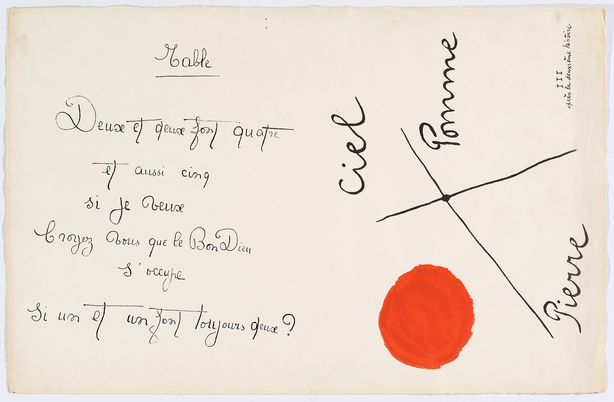 Table
Deux et deux font quatre
et aussi cinq
si je veux
Croyez vous que le Bon Dieu
s'occupe
Si un et un font toujours deux ?
Ciel
Pomme
Pierre
III
après la deuxième histoire